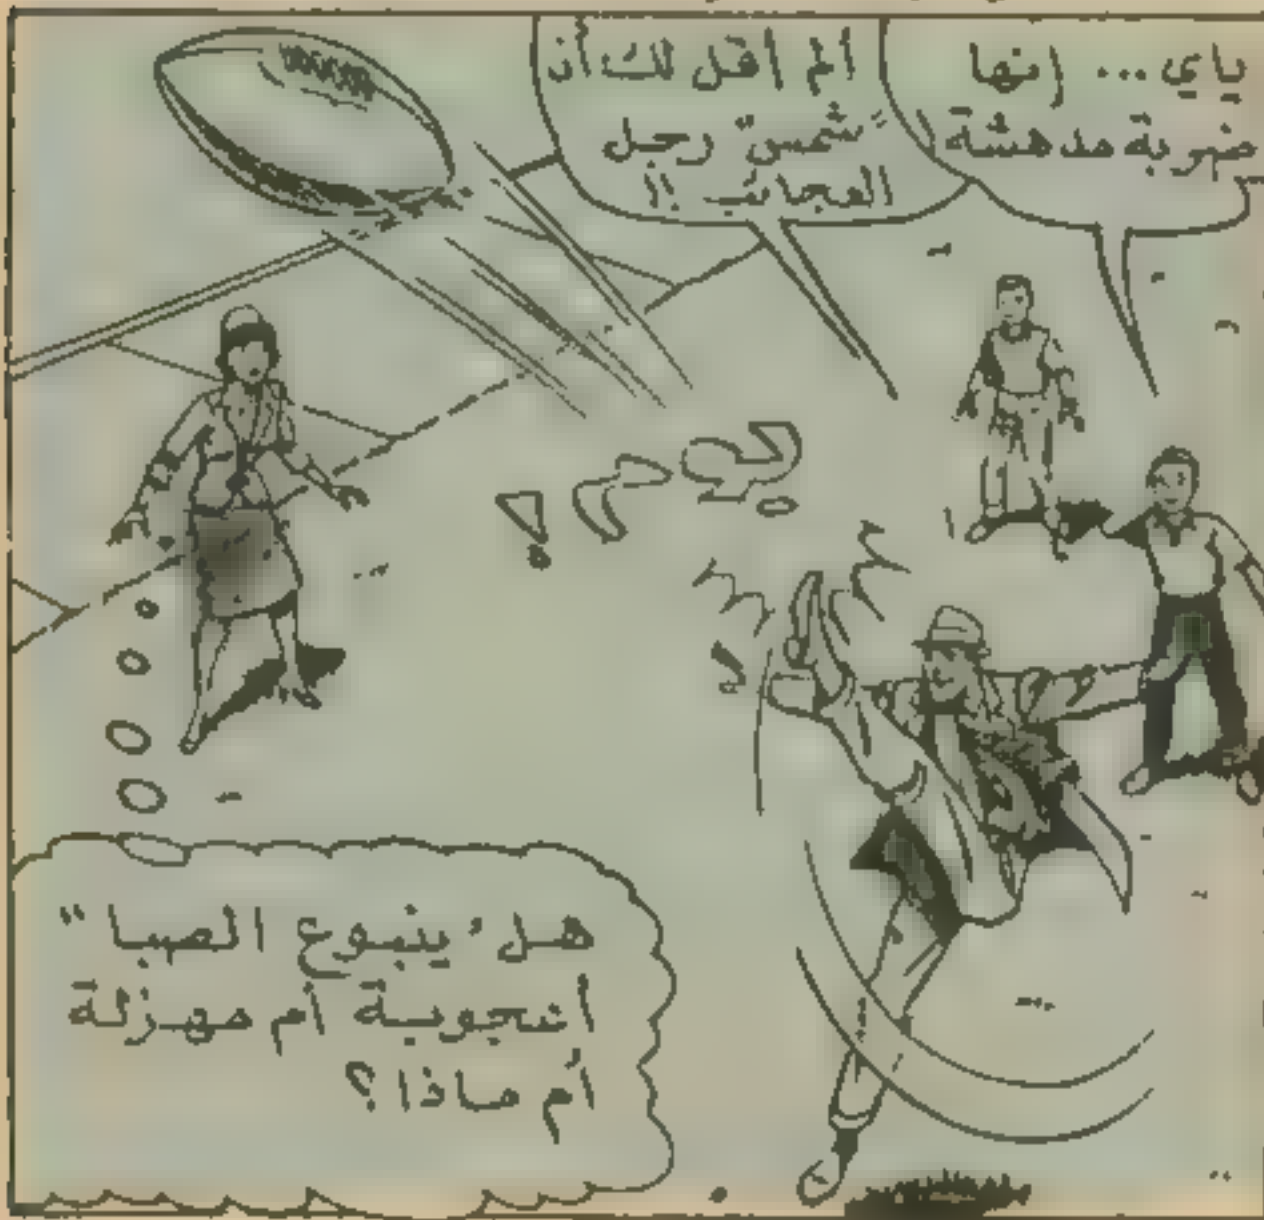 ياي ... إنها
ضربة مدهشة !
ألم أقل لك أن
"شمس" رجل
العجائب !!
هل "ينبوع الصبا"
أعجوبة أم مهزلة
أم ماذا ؟